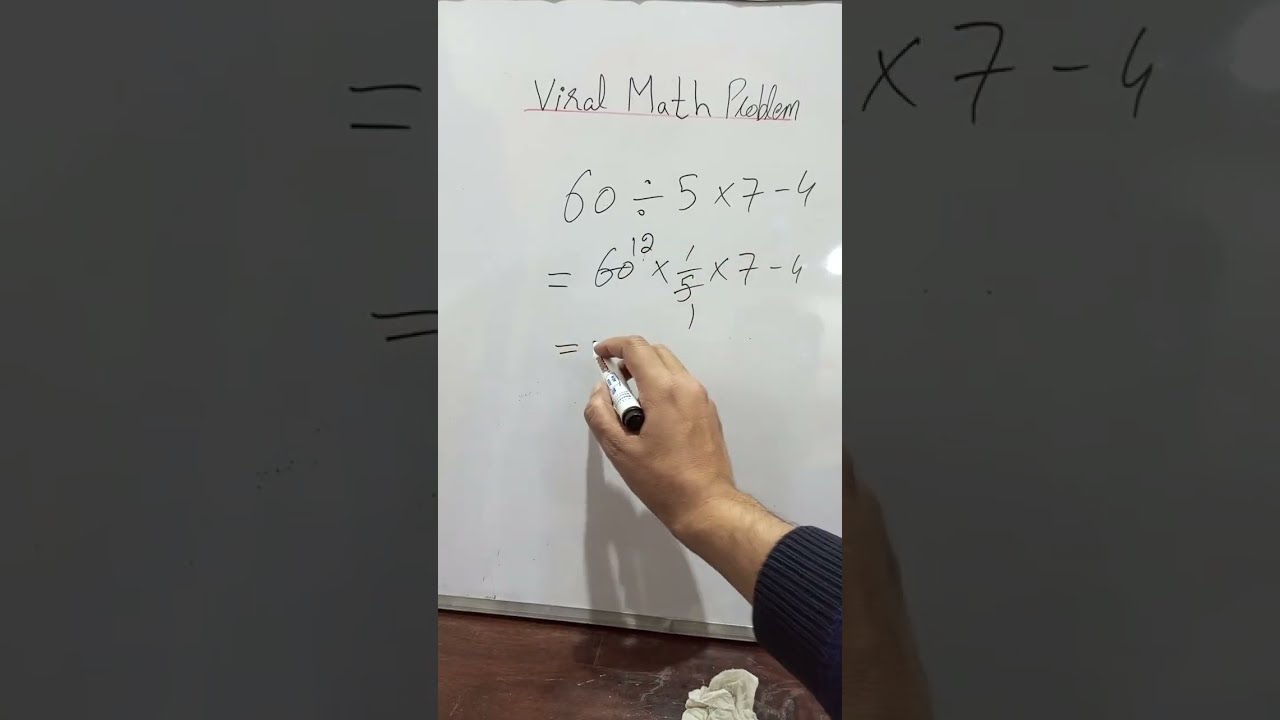 Viral Math Problem
60 ÷ 5 × 7 - 4
= 60 12 × 1/5 1 × 7 - 4
=